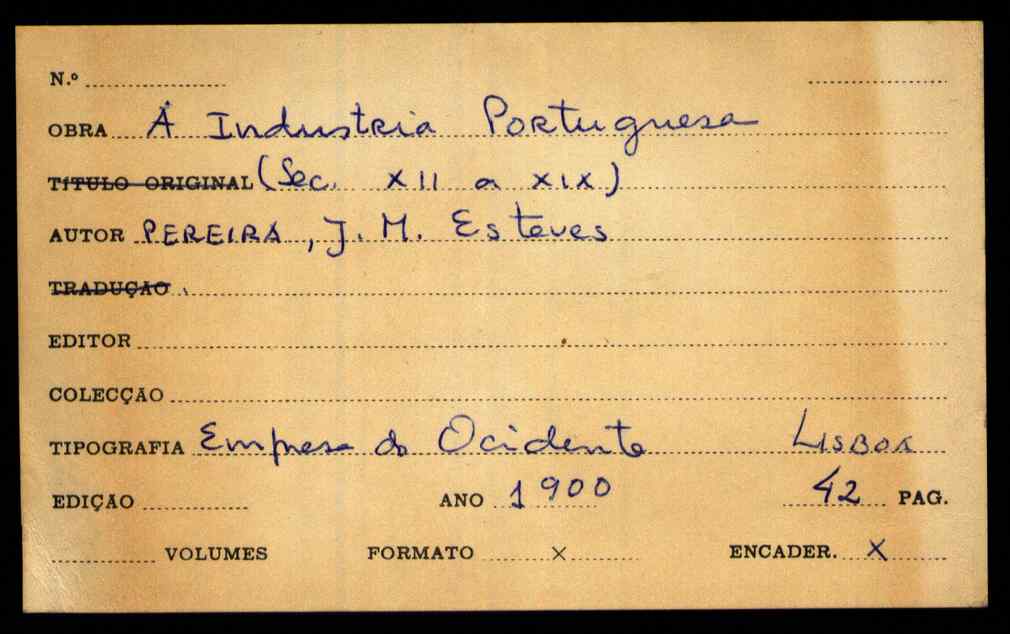 N.º
OBRA A Industria Portuguesa
TÍTULO ORIGINAL (Sec. XII a XIX)
AUTOR PEREIRA, J. M. Esteves
TRADUÇÃO
EDITOR
COLECÇÃO
TIPOGRAFIA Empresa do Ocidente LISBOA
EDIÇÃO ANO 1900 42 PAG.
VOLUMES FORMATO X ENCADER. X